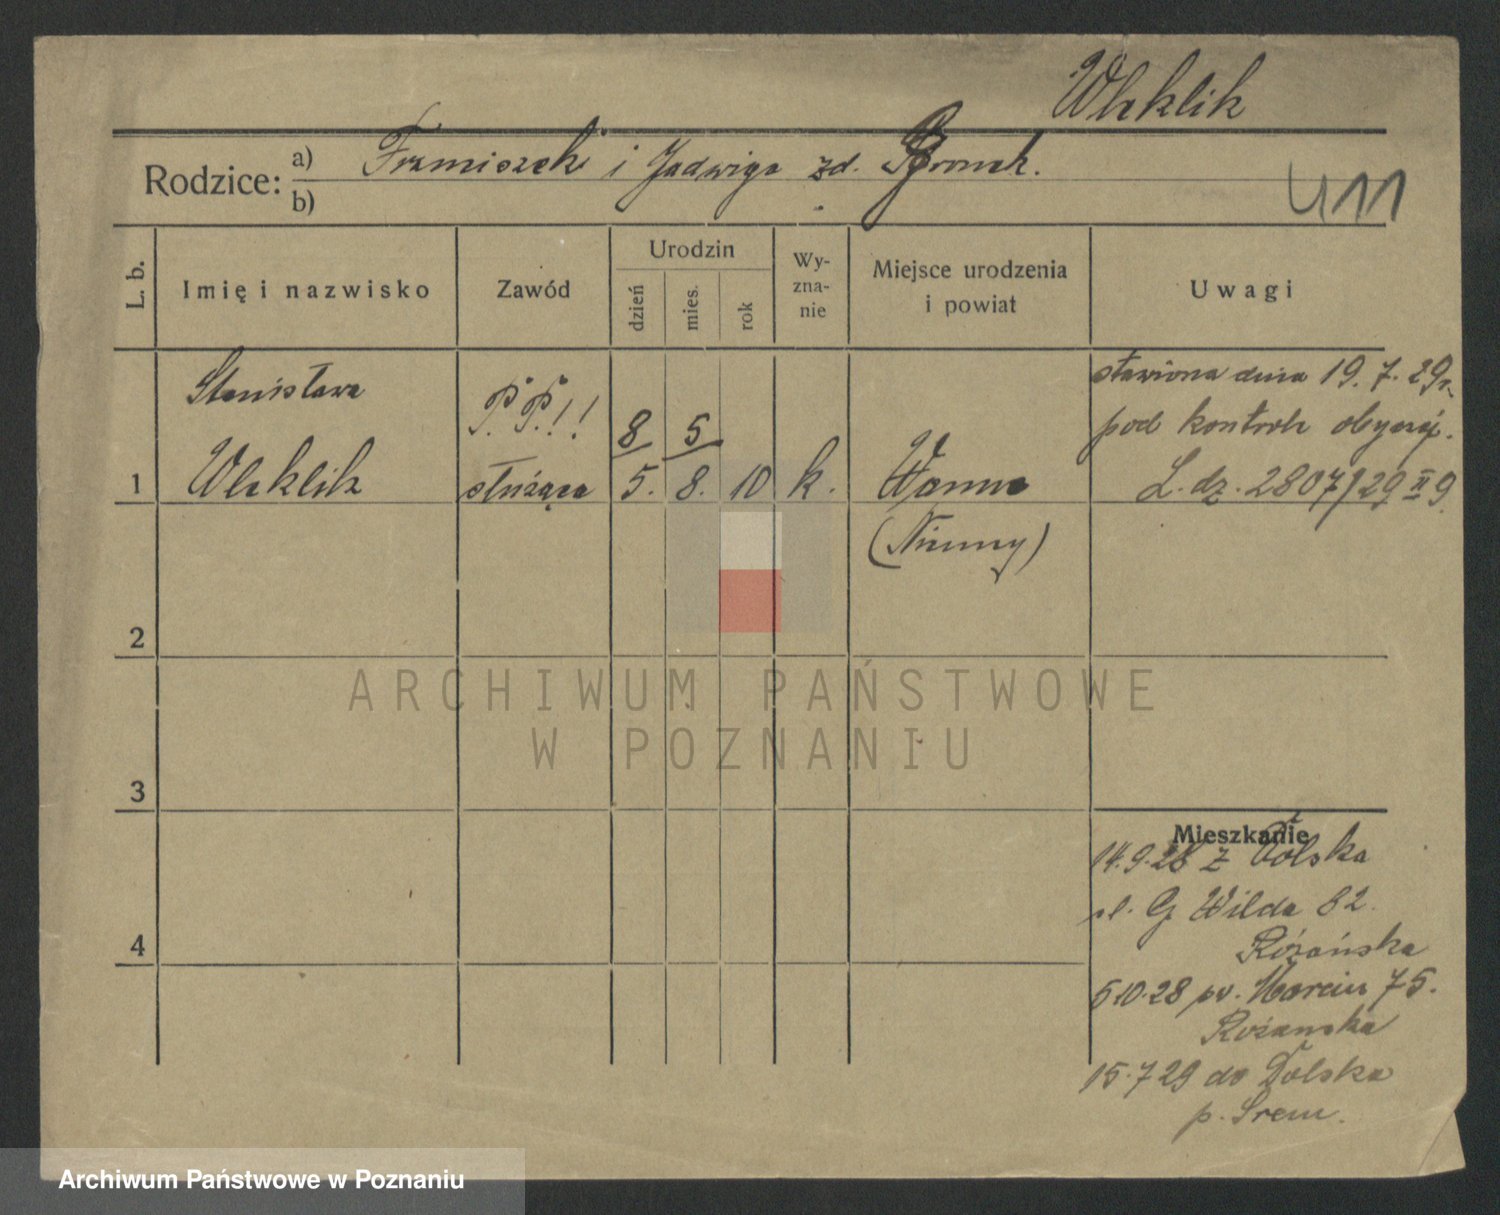 Wleklik
Rodzice: a) Franciszek i Jadwiga zd.
b)
411
L. b.
Imię i nazwisko
Zawód
Urodzin
dzień
mies.
rok
Wy-
zna-
nie
Miejsce urodzenia
i powiat
Uwagi
Stanisława
P. P.!!
8 5
stawiona dnia 19. 7. 29 r.
pod kontrolę obyczaj.
1 Wleklik służąca 5. 8. 10 k. Wanne L. dz. 2807/29 II 9
(Niemcy)
2
3
4
Mieszkanie
14.9.28 z Dolska
ul. G Wilda 82
Różańska
5.10.28 św. Marcin 75.
Różanska
15.7 29 do Dolska
p. Śrem.
ARCHIWUM PAŃSTWOWE
W POZNANIU
Archiwum Państwowe w Poznaniu